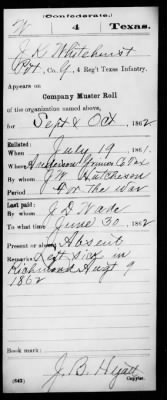 (Confederate.)
W 4 Texas.
J. K. Whitehurst
Pvt, Co. G, 4 Reg't Texas Infantry.
Appears on
Company Muster Roll
of the organization named above,
for Sept & Oct, 1862
Enlisted:
When July 19, 1861.
Where Anderson Grimes Co Tex
By whom J. W. Hutcheson
Period For the war
Last paid:
By whom J. D. Wade
To what time June 30, 1862
Present or absent Absent
Remarks: Left sick in
Richmond Augt 9
1862
Book mark:
J. B. Hyatt
(642) Copyist.